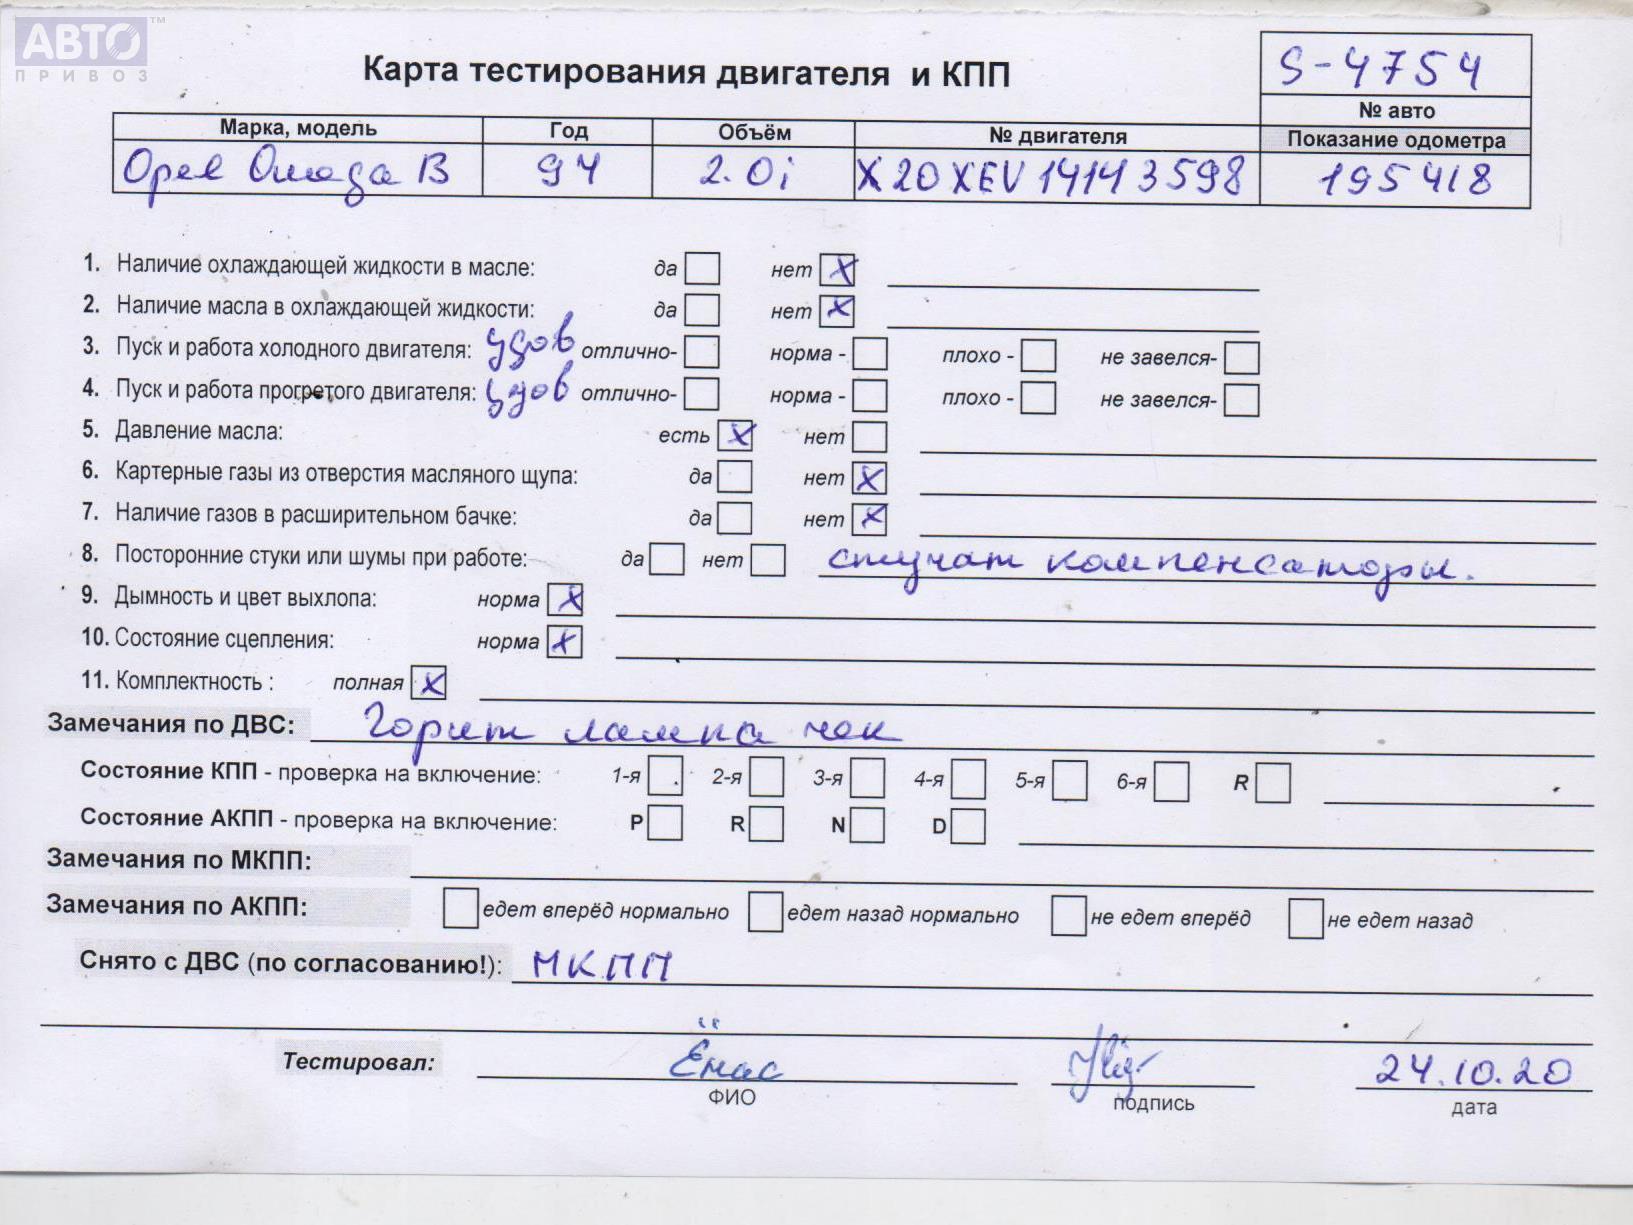 АВТО ™
ПРИВОЗ
Карта тестирования двигателя и КПП
S-4754
№ авто
Марка, модель Год Объём № двигателя Показание одометра
Opel Омега В 94 2.0i X20XEV14143598 195418
1. Наличие охлаждающей жидкости в масле: да нет X
2. Наличие масла в охлаждающей жидкости: да нет X
3. Пуск и работа холодного двигателя: удов отлично- норма - плохо - не завелся-
4. Пуск и работа прогретого двигателя: удов отлично- норма - плохо - не завелся-
5. Давление масла: есть X нет
6. Картерные газы из отверстия масляного щупа: да нет X
7. Наличие газов в расширительном бачке: да нет X
8. Посторонние стуки или шумы при работе: да нет стучат компенсаторы.
9. Дымность и цвет выхлопа: норма X
10. Состояние сцепления: норма X
11. Комплектность : полная X
Замечания по ДВС: Горит лампа чек
Состояние КПП - проверка на включение: 1-я 2-я 3-я 4-я 5-я 6-я R
Состояние АКПП - проверка на включение: P R N D
Замечания по МКПП:
Замечания по АКПП: едет вперёд нормально едет назад нормально не едет вперёд не едет назад
Снято с ДВС (по согласованию!): МКПП
Тестировал: 24.10.20
ФИО подпись дата